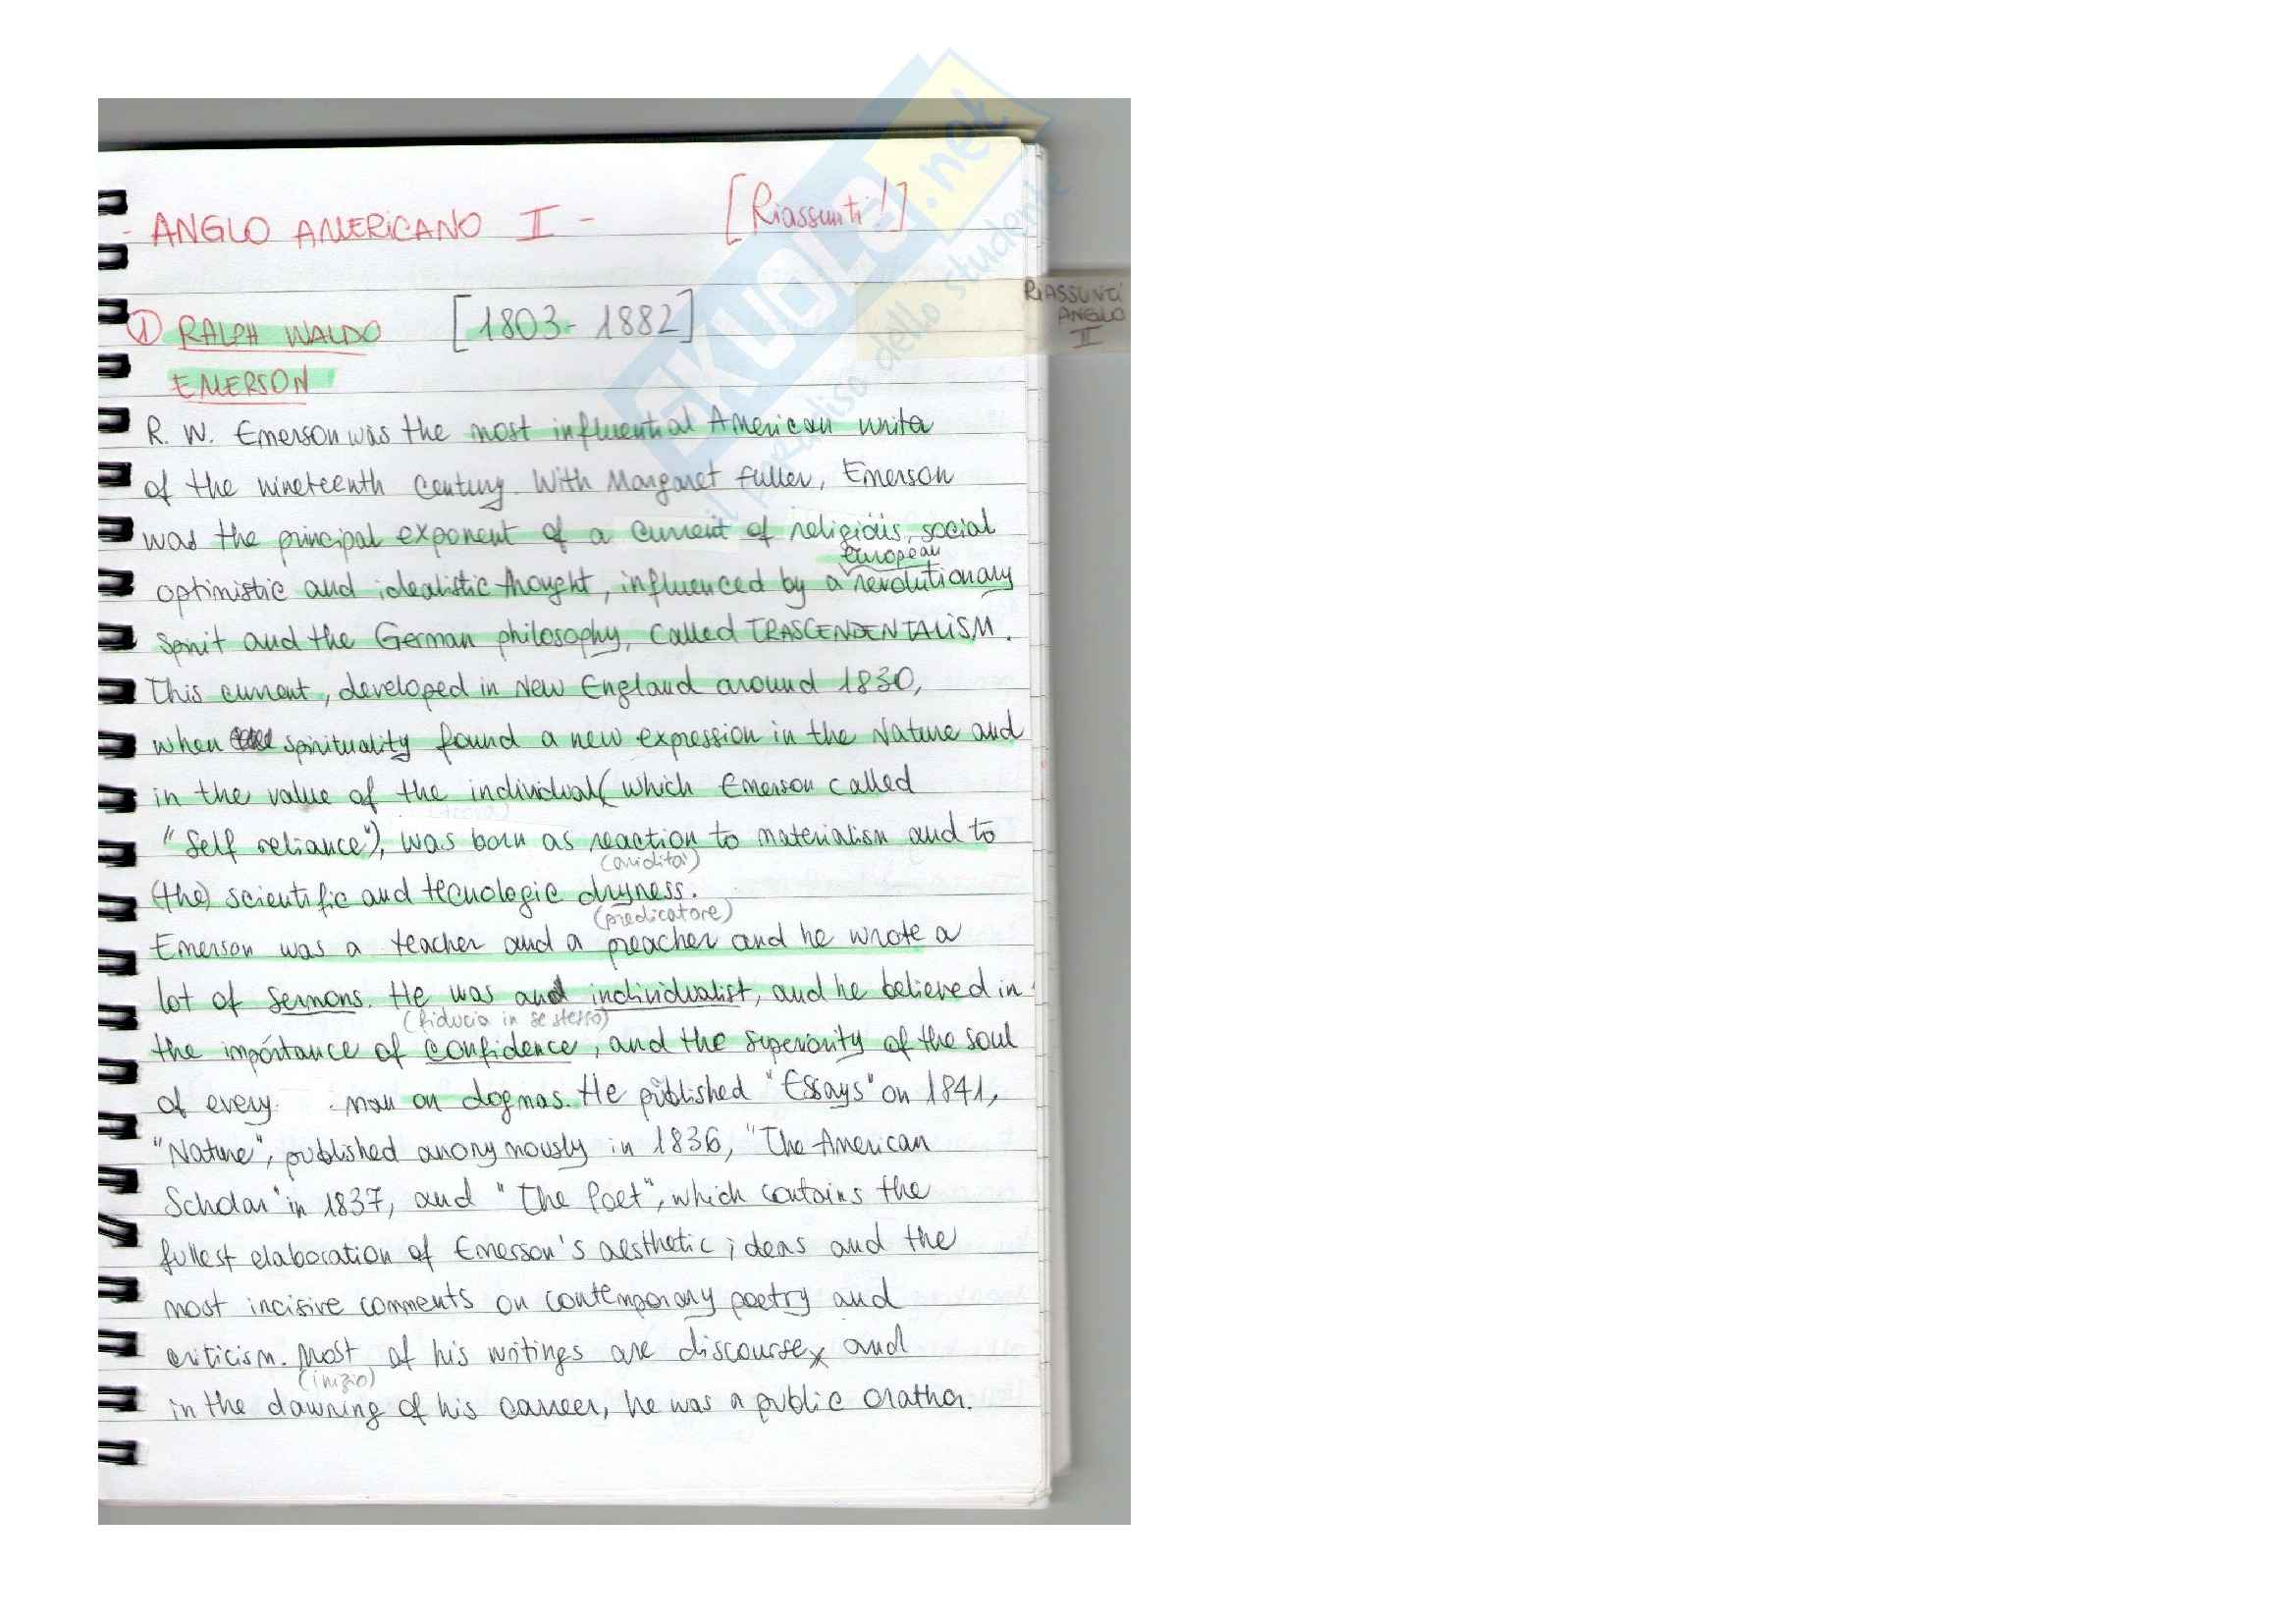 - ANGLO AMERICANO II - [Riassunti!]
RIASSUNTI
ANGLO
II
① RALPH WALDO [1803 - 1882]
EMERSON
R. W. Emerson was the most influential American writer
of the nineteenth century. With Margaret Fuller, Emerson
was the principal exponent of a current of religious, social
european
optimistic and idealistic thought, influenced by a revolutionary
spirit and the German philosophy, called TRASCENDENTALISM.
This current, developed in New England around 1830,
when spirituality found a new expression in the Nature and
in the value of the individual (which Emerson called
"Self reliance"), was born as reaction to materialism and to
(aridità)
(the) scientific and tecnologic dryness.
(predicatore)
Emerson was a teacher and a preacher and he wrote a
lot of sermons. He was and individualist, and he believed in
(fiducia in se stesso)
the importance of confidence, and the superiority of the soul
of every man on dogmas. He published "Essays" on 1841,
"Nature", published anonymously in 1836, "The American
Scholar" in 1837, and "The Poet", which contains the
fullest elaboration of Emerson's aesthetic ideas and the
most incisive comments on contemporary poetry and
criticism. Most of his writings are discourse and
(inizio)
in the dawning of his career, he was a public orathor.
SKUOLA.net
il paradiso dello studente